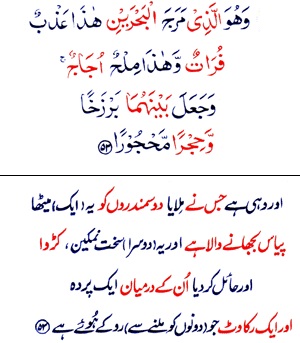 وَهُوَ الَّذِیْ مَرَجَ الْبَحْرَیْنِ هٰذَا عَذْبٌ
فُرَاتٌ وَّهٰذَا مِلْحٌ اُجَاجٌ ۚ
وَجَعَلَ بَیْنَهُمَا بَرْزَخًا
وَّحِجْرًا مَّحْجُوْرًا ﴿۵۳﴾
اور وہی ہے جس نے مِلایا دو سمندروں کو یہ (ایک) میٹھا
پیاس بجھانے والا ہے اور یہ (دوسرا) سخت نمکین، کڑوا
اور حائل کر دیا اُن کے درمیان ایک پردہ
اور ایک رکاوٹ جو (دونوں کو مِلنے سے) روکے ہُوئے ہے ﴿۵۳﴾